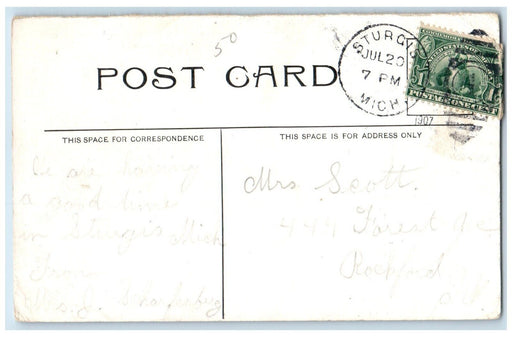 50
POST CARD
STURGIS
JUL 20
7 PM
MICH.
1907
POSTAGE ONE CENT
THIS SPACE FOR CORRESPONDENCE
THIS SPACE IS FOR ADDRESS ONLY
are having
a good time
in Sturgis Mich
From
Mrs. Scott.
Forest
Rockford